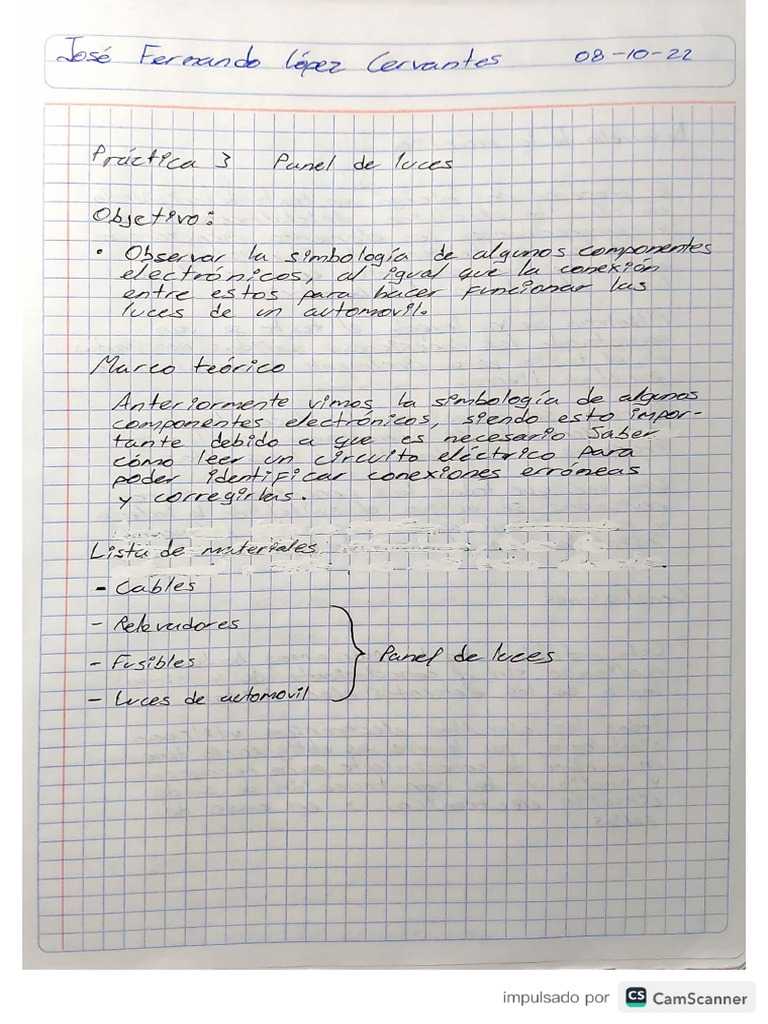 José Fernando López Cervantes 08-10-22
Práctica 3 Panel de luces
Objetivo:
• Observar la simbología de algunos componentes
electrónicos, al igual que la conexión
entre estos para hacer funcionar las
luces de un automovil.
Marco teórico
Anteriormente vimos la simbología de algunos
componentes electrónicos, siendo esto impor-
tante debido a que es necesario saber
cómo leer un circuito eléctrico para
poder identificar conexiones erróneas
y corregirlas.
Lista de materiales
- Cables
- Relevadores
- Fusibles
- Luces de automovil
Panel de luces
impulsado por CS CamScanner